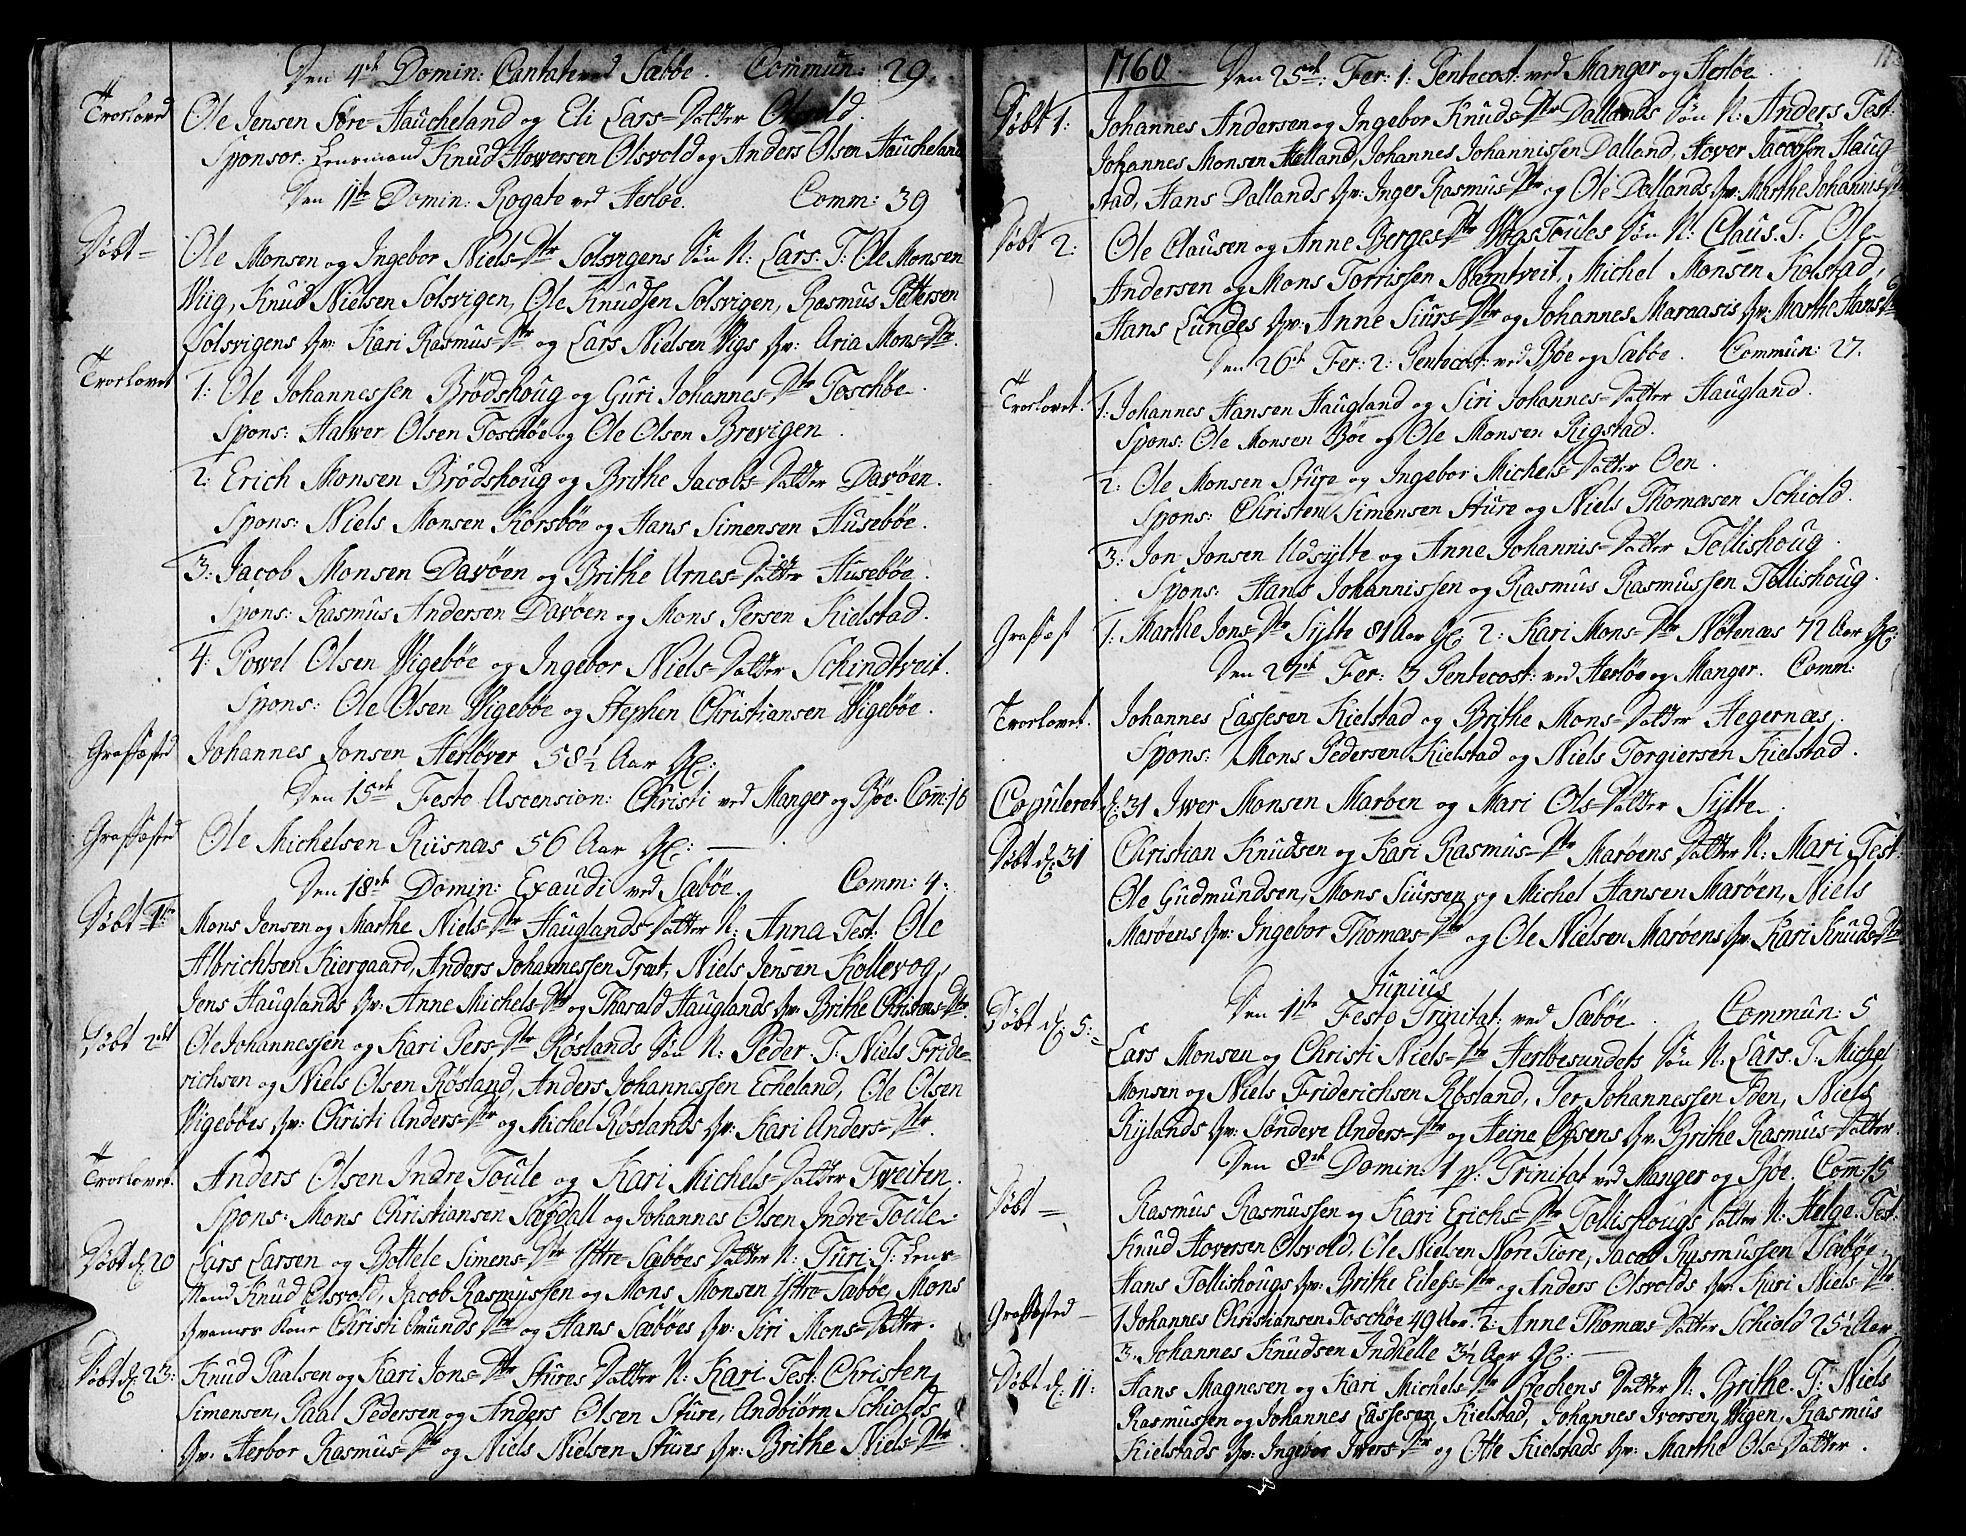 Den 4de Domin: Cantate ved Sæbøe. Commun: 29.
Troelovet Ole Jensen Søre-Haucheland og Eli Lars-Datter
Sponsor: Lensmand Knud Howersen Olsvold og Anders Olsen Haucheland
Den 11te Domin: Rogate ved Herløe. Comm: 39
Døbt- Ole Monsen og Ingebor Niels-Dtr Solsvigens Søn N: Lars. T: Ole Monsen
Wiig, Knud Nielsen Solsvigen, Ole Knudsen Solsvigen, Rasmus Pettersen
Solsvigens Qv: Kari Rasmus-Dtr og Lars Nielsen Wigs Qv: Aria Mons-Dtr.
Troelovet 1: Ole Johannessen Brødshoug og Guri Johannes-Dtr Toschøe.
Spons: Halwer Olsen Toschøe og Ole Olsen Brevigen.
2: Erich Monsen Brødshoug og Brithe Jacobs-Datter Davøen.
Spons: Niels Monsen Korsbøe og Hans Simensen Husebøe.
3: Jacob Monsen Davøen og Brithe Arnes-Datter Husebøe.
Spons: Rasmus Andersen Davøen og Mons Persen Kielstad.
4: Powel Olsen Wigebøe og Ingebor Niels-Datter Schindtveit.
Spons: Ole Olsen Wigebøe og Stephen Christiansen Wigebøe.
Grafæsted Johannes Jonsen Herløver 58½ Aar Gl:
Den 15de Festo Ascension: Christi ved Manger og Bøe. Com: 16
Grafæsted Ole Michelsen Riisnæs 56 Aar Gl:
Den 18de Domin: Exaudi ved Sæbøe. Comm: 4.
Døbt 1te Mons Jensen og Marthe Niels-Dtr Hauglands Datter N: Anna Test: Ole
Albrichtsen Kiergaard, Anders Johannessen Træt, Niels Jensen Kollevog,
Jens Hauglands Qv: Anne Michels-Dtr og Tharald Hauglands Qv: Brithe Christens-Dtr.
Døbt 2det Ole Johannessen og Kari Pers-Dtr Røslands Søn N: Peder. T: Niels Fride-
richsen og Niels Olsen Røsland, Anders Johannessen Echeland, Ole Olsen
Wigebøes Qv: Christi Anders-Dtr og Michel Røslands Qv: Kari Anders-Dtr.
Troelovet. Anders Olsen Indre Toule og Kari Michels-Datter Tveiten.
Spons: Mons Christiansen Sægdall og Johannes Olsen Indre-Toule.
Døbt d. 20 Lars Larsen og Bottele Simens-Dtr Ystre-Sæbøes Datter N: Turi. T: Lens-
Mand Knud Olsvold, Jacob Rasmussen og Mons Monsen Ystre Sæbøe, Mons
Kone Christi Omunds Dtr og Hans Sæbøes Qv: Siri Mons-Datter.
Døbt d. 23: Knud Paalsen og Kari Jons-Dtr Stures Datter N: Kari Test: Christen
Simensen, Paal Pedersen og Anders Olsen Sture, Andbiørn Schiolds
Qv: Herbor Rasmus-Dtr og Niels Nielsen Stures Qv: Brithe Niels-Dtr.
1760 Den 25de Fer: 1. Pentecost: ved Manger og Herløe.
Døbt 1: Johannes Andersen og Ingebor Knuds-Dtr Dallands Søn N: Anders Test:
Johannes Monsen Helland, Johannes Johannissen Dalland, Hover Jacobsen Haug
stad, Hans Dallands Qv: Inger Rasmus-Dtr og Ole Dallands Qv: Marthe Johannis-Dtr
Døbt 2: Ole Clausen og Anne Berges Dtr Wogs Toules Søn N: Claus. T: Ole
Andersen og Mons Torrissen Namtveit, Michel Monsen Kolstad,
Hans Lundes Qv: Anne Siurs-Dtr og Johannes Maraasis Qv: Marthe Hans Dtr
Den 26de Fer: 2: Pentecost: ved Bøe og Sæbøe. Commun: 27.
Troelovet. 1: Johannes Hansen Haugland og Siri Johannes-Datter Haugland.
Spons: Ole Monsen Bøe og Ole Monsen Rigstad.
2: Ole Monsen Sture og Ingebor Michels-Datter Oen.
Spons: Christen Simensen Sture og Niels Thomæsen Schiold.
3: Jon Jonsen Udsylte og Anne Johannis-Datter Tollishoug.
Spons: Hans Johannissen og Rasmus Rasmussen Tollishoug.
Grafæst 1: Marthe Jons-Dtr Sylte 81 Aar Gl. 2: Kari Mons-Dtr Nøtenæs 72 Aar Gl:
Den 27de Fer: 3 Pentecost: ved Herløe og Manger. Comm:
Troelovet. Johannes Lassesen Kielstad og Brithe Mons-Datter Hegernæs.
Spons: Mons Pedersen Kielstad og Niels Torgiersen Kielstad.
Copuleret d: 31 Iwer Monsen Marøen og Mari Ols-Datter Sylte.
Døbt d. 31 Christian Knudsen og Kari Rasmus-Dtr Marøens Datter N: Mari Test:
Ole Gudmundsen, Mons Siursen og Michel Hansen Marøen, Niels
Marøens Qv: Ingebor Thomæs-Dtr og Ole Nielsen Marøens Qv: Kari Knuds-Dtr
Junius
Den 1te Festo Trinitat: ved Sæbøe. Commun: 5
Døbt d. 5:- Lars Monsen og Christi Niels-Dtr Herløesundets Søn N: Lars. T: Michel
Monsen og Niels Friderichsen Røsland, Per Johannessen Iden, Niels
Rylands Qv: Søndeve Anders-Dtr og Heine Qv: Brithe Rasmus-Datter.
Den 8de Domin: 1 p: Trinitat ved Manger og Bøe. Com: 15
Døbt- Rasmus Rasmussen og Kari Erichs-Dtr Tollishougs Datter N: Helge. Test:
Knud Hoversen Olsvold, Ole Nielsen Nore Fiore, Jacob Rasmussen Sæbøe
Hans Tollishougs Qv: Brithe Eilefs-Dtr og Anders Olsvolds Qv: Kari Niels-Dtr.
Grafæsted- 1 Johannes Christiansen Toschøe 49 Aar. 2: Anne Thomæs-Datter Schiold 25½ Aar
3. Johannes Knudsen Induelle 3½ Aar Gl:
Døbt d. 11: Hans Magnesen og Kari Michels-Dtr Datter N: Brithe. T: Niels
Rasmussen og Johannes Lassesen Kielstad, Johannes Iversen Wigen, Rasmus
Kielstads Qv: Ingebor Ivers-Dtr og Otte Kielstads Qv: Marthe Ols-Datter.